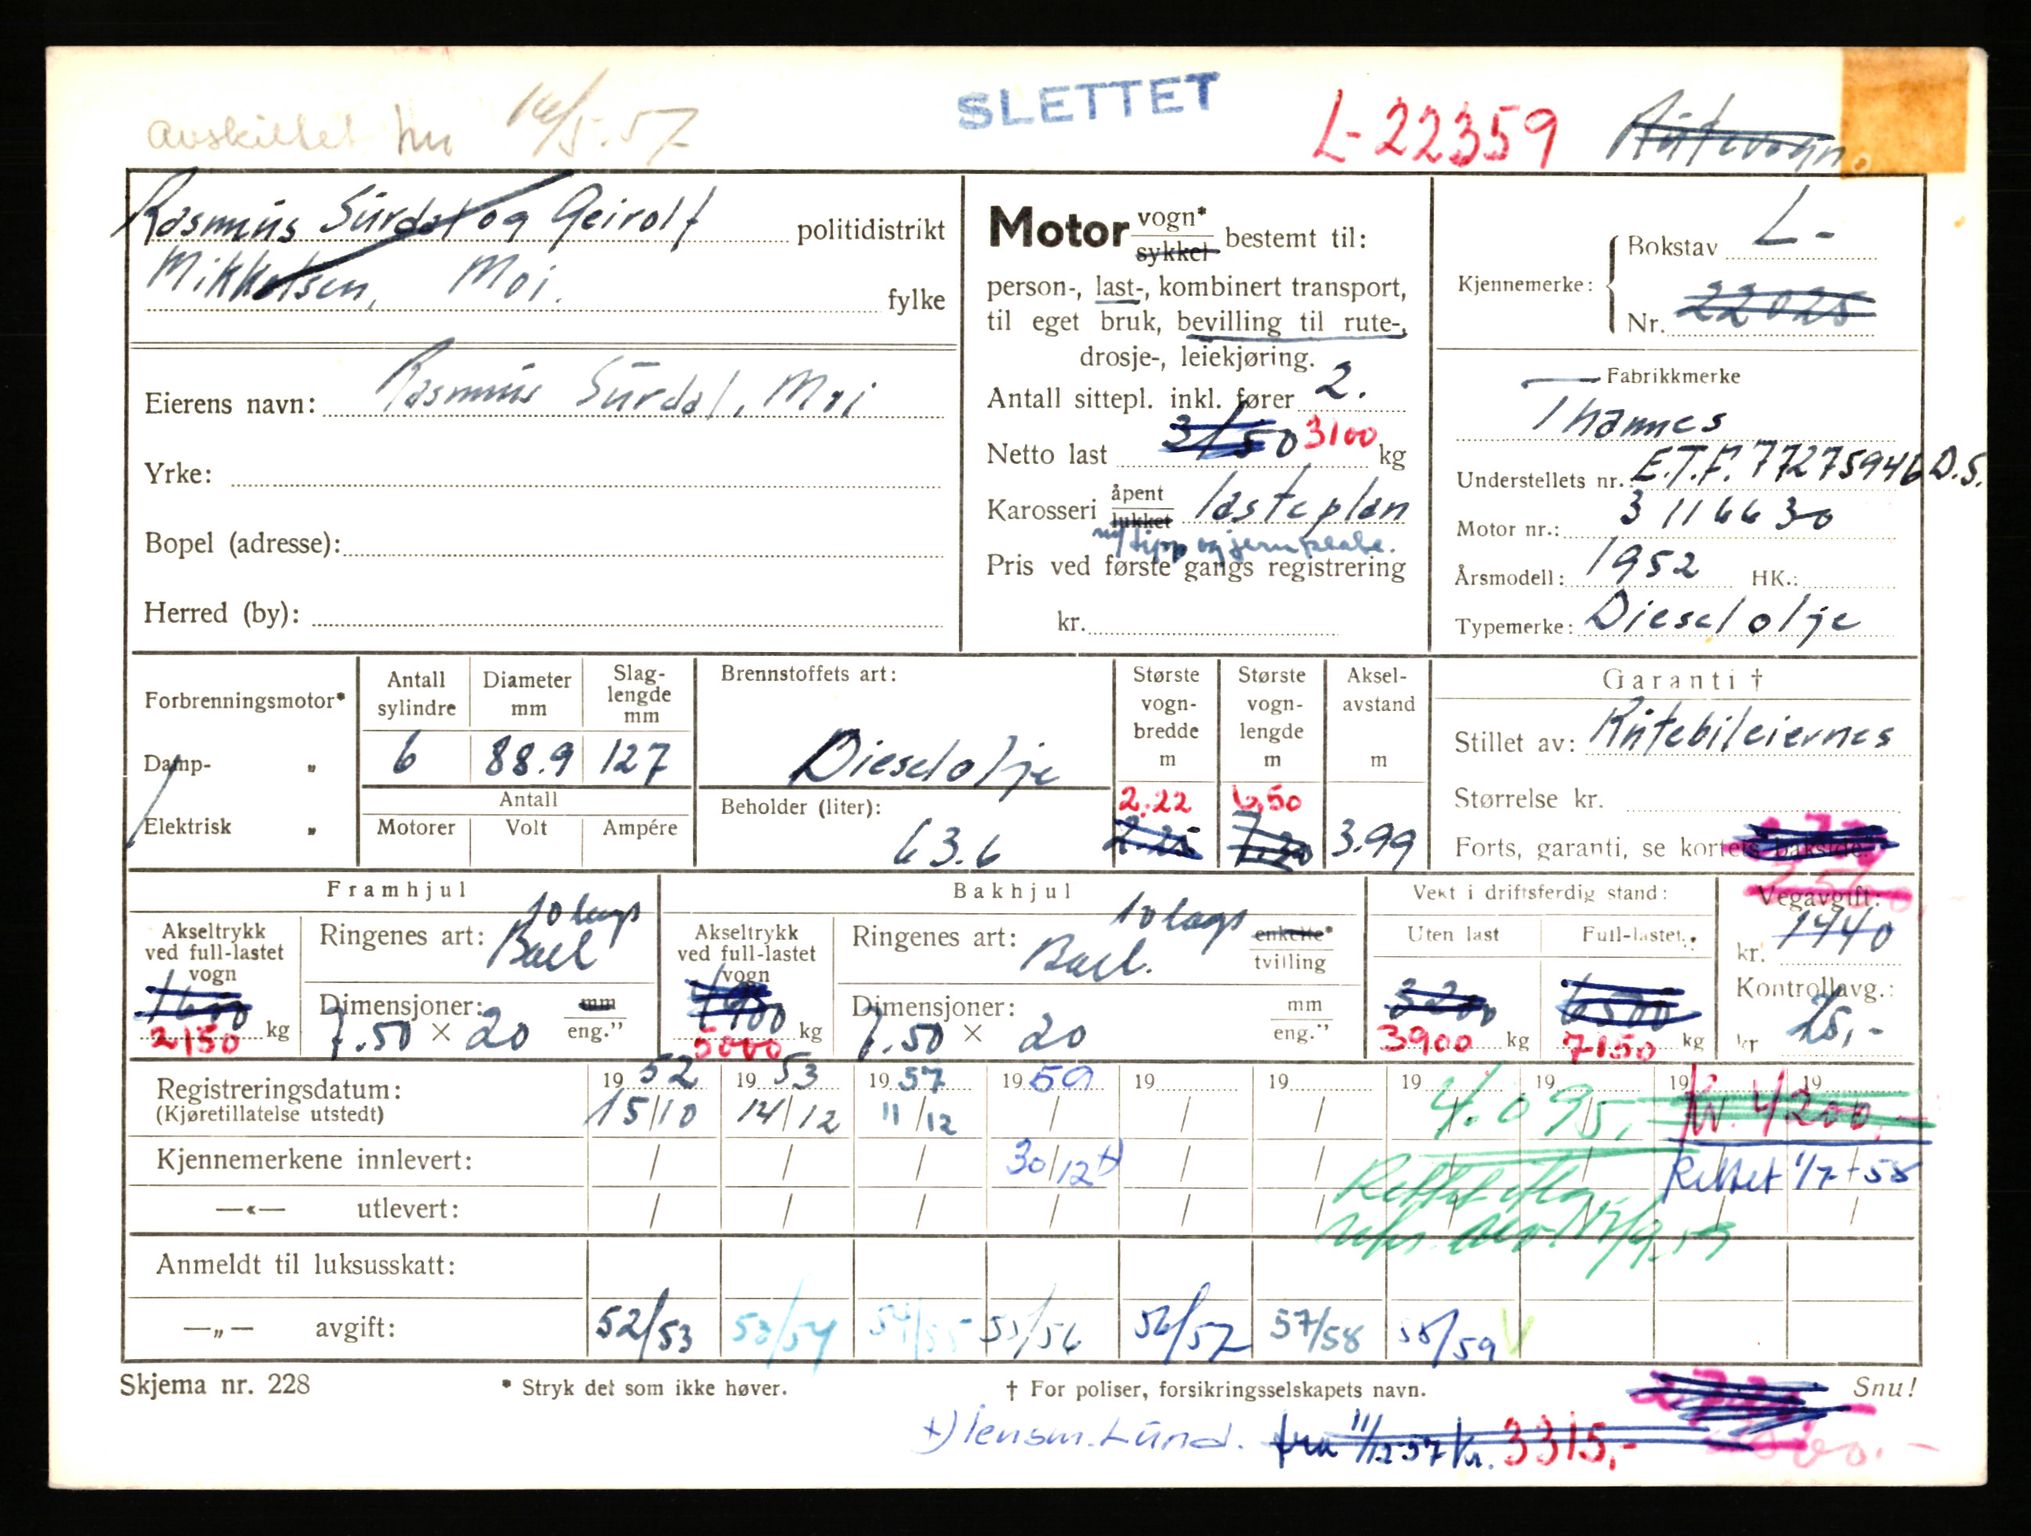 avskiltet 14/5-57
SLETTET
L-22359
Rutevogn
Rasmus Surdal og Geirolf politidistrikt
Mikkelsen, Moi. fylke
Eierens navn: Rasmus Surdal, Moi
Yrke:
Bopel (adresse):
Herred (by):
Motor vogn* sykkel bestemt til:
person-, last-, kombinert transport,
til eget bruk, bevilling til rute-,
drosje-, leiekjøring.
Antall sittepl. inkl. fører 2.
Netto last 3150 3100 kg
Karosseri åpent lukket lasteplan
m/tipp og
Pris ved første gangs registrering
kr.
Kjennemerke: Bokstav L-
Nr. 22025
Fabrikkmerke
Thames
Understellets nr.: E.T.F. 77275946 D.S.
Motor nr.: 3116630
Årsmodell: 1952 HK.:
Typemerke: Dieselolje
Forbrenningsmotor*
Damp- "
Elektrisk "
Antall sylindre 6
Diameter mm 88.9
Slag-lengde mm 127
Antall
Motorer Volt Ampére
Brennstoffets art:
Dieselolje
Beholder (liter):
63.6
Største vogn-bredde m 2.22 2.25
Største vogn-lengde m 6,50 7,20
Aksel-avstand m 3.99
Garanti †
Stillet av: Rutebileiernes
Størrelse kr.
Forts, garanti, se kortets bakside.
Framhjul
Akseltrykk ved full-lastet vogn 1600 2150 kg
Ringenes art: 10 lags
Dimensjoner: 7.50 × 20 mm eng."
Bakhjul
Akseltrykk ved full-lastet vogn 4900 5000 kg
Ringenes art: 10 lags enkelte* tvilling
Dimensjoner: 7.50 × 20 mm eng."
Vekt i driftsferdig stand:
Uten last 3200 3900 kg
Full-lastet: 6500 7150 kg
Vegavgift:
kr. 1440
Kontrollavg.:
kr 25,-
Registreringsdatum: 1952 1953 1957 1959 19 19 19 19 19 19
(Kjøretillatelse utstedt) 15/10 14/12 11/12 / / / 4.095,- Kr. 4200,-
Kjennemerkene innlevert: / / / 30/12 +) / / Rettet 1/7-58
—«— utlevert: / / / / / /
Anmeldt til luksusskatt:
—„— avgift: 52/53 53/54 54/55 55/56 56/57 57/58 58/59 V
Skjema nr. 228
* Stryk det som ikke høver.
† For poliser, forsikringsselskapets navn.
Snu!
+) lensm. Lund. fra 11/12-57 kr. 3315,-